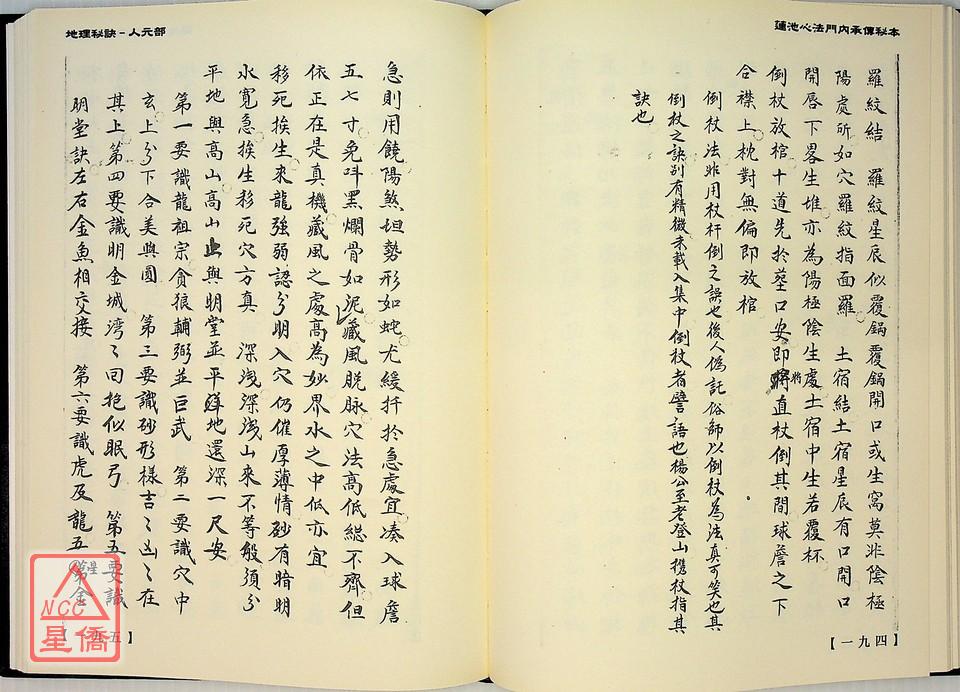 蓮池心法門內承傳秘本
羅紋結　羅紋星辰似覆鍋覆鍋開口或生窩莫非陰極
陽處所如穴羅紋指面羅　土宿結土宿星辰有口開口
開唇下畧生堆亦為陽極陰生處土宿中生若覆杯
倒杖放棺十道先於塋口安即將直杖倒其間球簷之下
合襟上枕對無偏即放棺
倒杖法非用杖杆倒之誤也後人偽託俗師以倒杖為法真可笑也其
倒杖之訣別有精微未載入集中倒杖者譬語也楊公至老登山携杖指其
訣也
【一九四】
地理秘訣-人元部
急則用饒陽煞坦勢形如蛇尤緩扦於急處宜湊入球簷
五七寸免呌黑爛骨如泥藏風脫脉穴法高低総不齊但
依正在是真機藏風之處高為妙界水之中低亦宜
移死挨生來龍強弱認分明入穴仍催厚薄情砂有暗明
水寬急挨生移死穴方真　深浅深浅山來不等般須分
平地與高山高山止與明堂並平地還深一尺安
第一要識龍祖宗貪狼輔弼並巨武　第二要識穴中
玄上分下合美與圓　第三要識砂形樣吉〻凶〻在
其上第四要識明金城湾〻回抱似眠弓　第五要識
明堂訣左右金魚相交接　第六要識虎及龍五星金
九五】
NCC
星僑